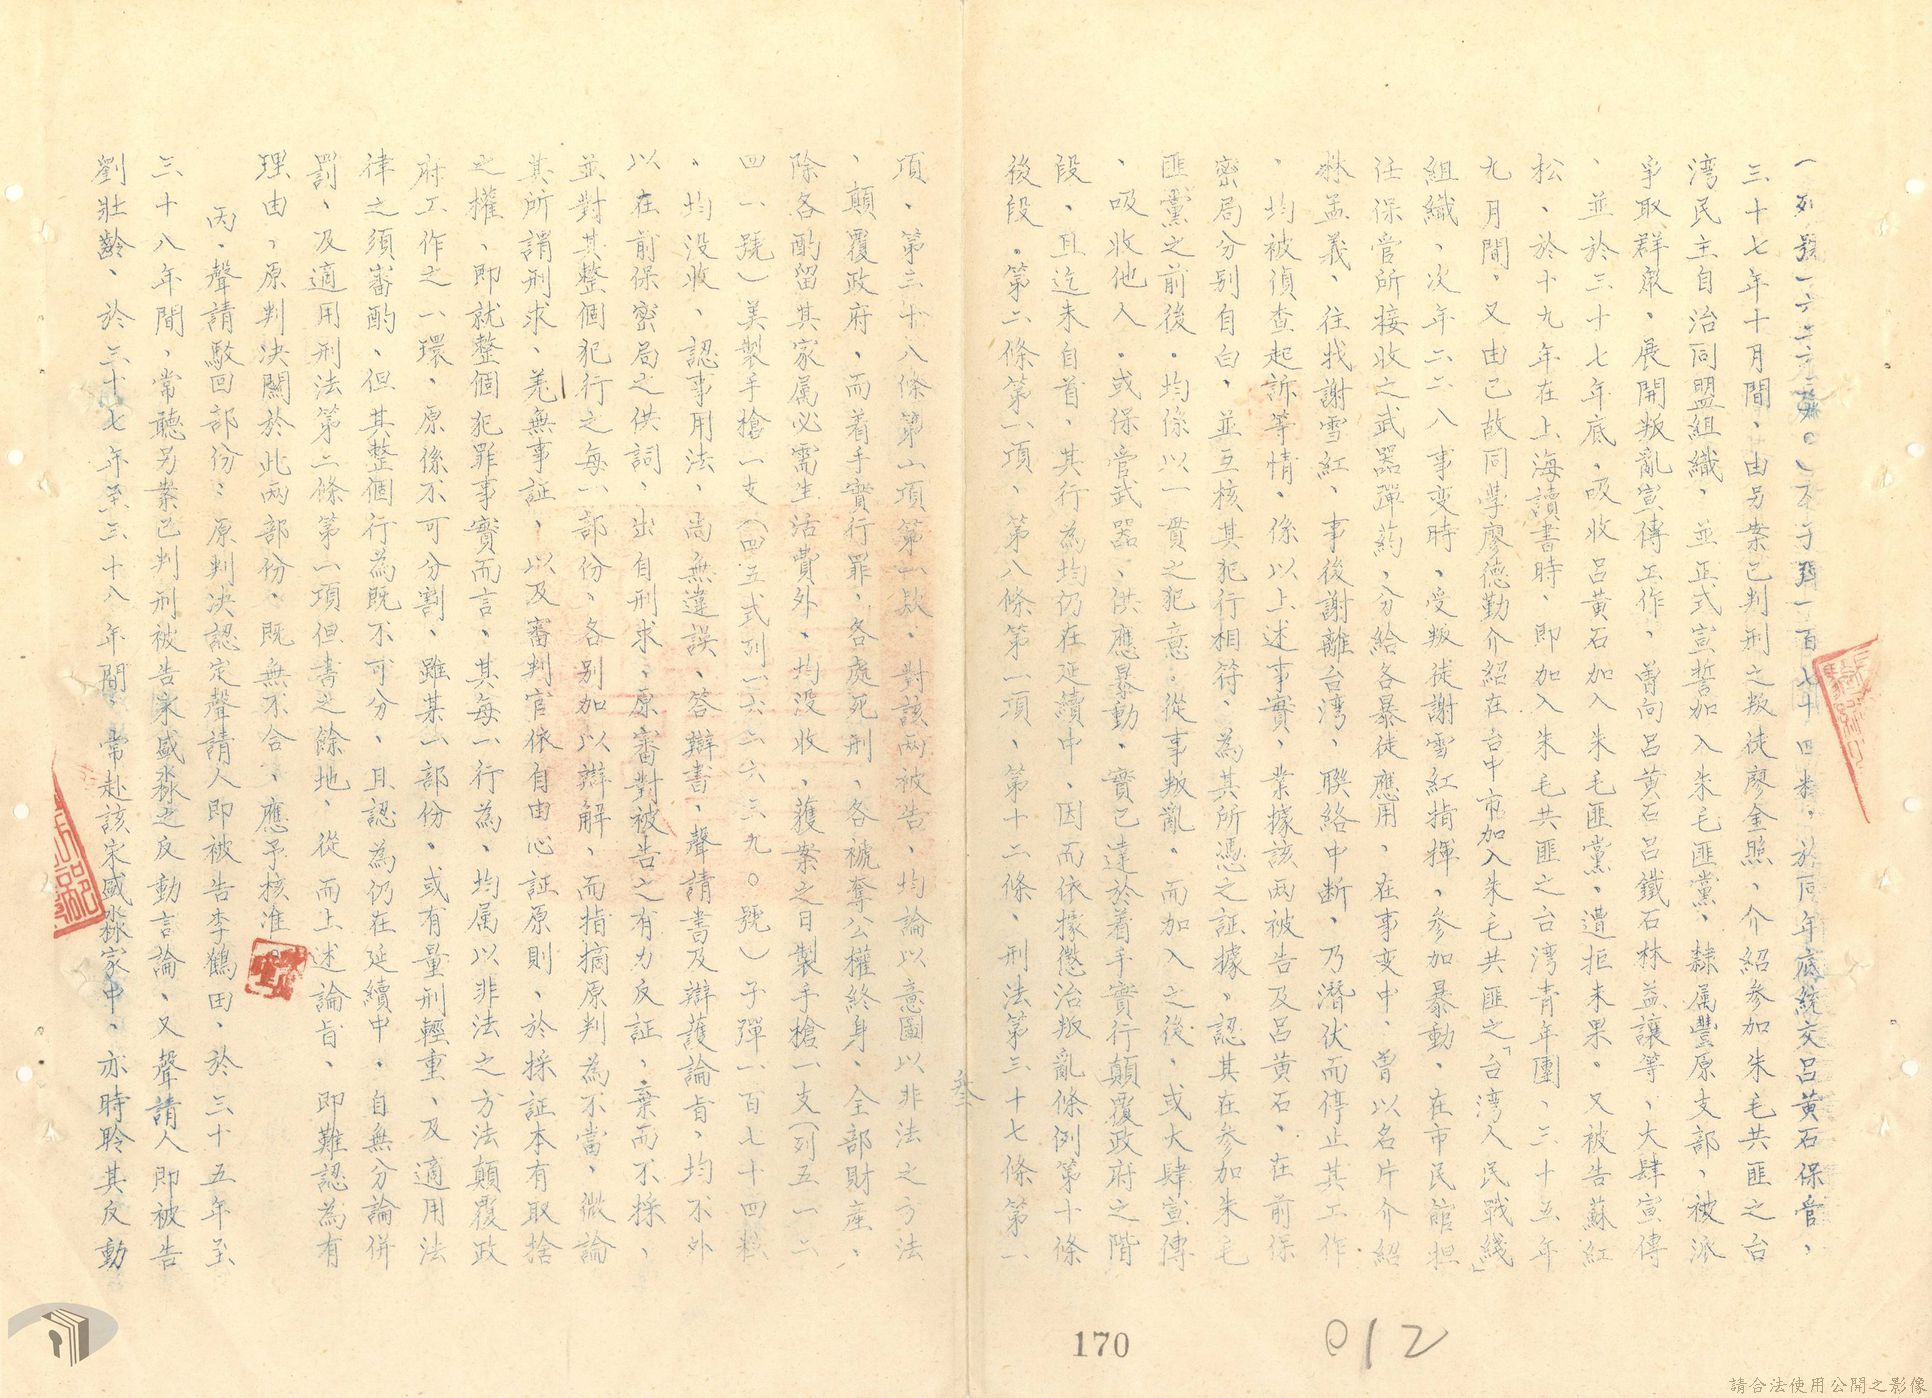 三十七年十月間、由另案已判刑之叛徒廖金照、介紹參加朱毛共匪之台
湾民主自治同盟組織、並正式宣誓加入朱毛匪黨、隸属豐原支部、被派
爭取群眾、展開叛亂宣傳工作、曾向呂黄石呂鐵石林益讓等、大肆宣傳
、並於三十七年底、吸收呂黄石加入朱毛匪黨、遭拒未果。又被告蘇紅
松、於十九年在上海讀書時、即加入朱毛共匪之台湾青年團、三十五年
九月間、又由已故同學廖德勤介紹在台中市加入朱毛共匪之「台湾人民戰綫」
組織、次年二二八事变時、受叛徒謝雪紅指揮、參加暴動、在市民館担
任保管所接收之武器彈葯、分給各暴徒應用、在事变中、曾以名片介紹
林孟義、往找謝雪紅、事後謝離台湾、聯絡中断、乃潛伏而停止其工作
、均被偵查起訴等情、係以上述事實、業據該两被告及呂黄石、在前保
密局分别自白、並互核其犯行相符、為其所憑之証據、認其在參加朱毛
匪黨之前後、均係以一貫之犯意、從事叛亂。而加入之後、或大肆宣傳
、吸收他人、或保管武器、供應暴動、實已達於着手實行顛覆政府之階
段、且迄未自首、其行為均仍在延續中、因而依據懲治叛亂條例第十條
後段、第二條第一項、第八條第一項、第十二條、刑法第三十七條第一
項、第三十八條第一項第一款、對該两被告、均論以意圖以非法之方法
、顛覆政府、而着手實行罪、各處死刑、各褫奪公權終身、全部財産、
除各酌留其家属必需生活費外、均没收、獲案之日製手槍一支（列五一二
四一號）美製手槍一支（四五式列一六二六六三九〇號）子彈一百七十四粒
、均没收、認事用法、尚無違誤、答辯書、聲請書及辯護論旨、均不外
以在前保密局之供詞、出自刑求、原審對被告之有力反証、棄而不採、
並對其整個犯行之每一部份、各别加以辯解、而指摘原判為不當、微論
其所謂刑求、羌無事証、以及審判官依自由心証原則、於採証本有取捨
之權、即就整個犯罪事實而言、其每一行為、均属以非法之方法顛覆政
府工作之一環、原係不可分割、雖某一部份、或有量刑輕重、及適用法
律之須審酌、但其整個行為既不可分、且認為仍在延續中、自無分論併
罰、及適用刑法第二條第一項但書之餘地、從而上述論旨、即難認為有
理由、原判決關於此两部份、既無不合、應予核准。
丙、聲請駁回部份：原判決認定聲請人即被告李鶴田、於三十五年至
三十八年間、常聽另案已判刑被告宋盛淼之反動言論、又聲請人即被告
劉壯齡、於三十七年至三十八年間、常赴該宋盛淼家中、亦時聆其反動
叁
170
012
請合法使用公開之影像